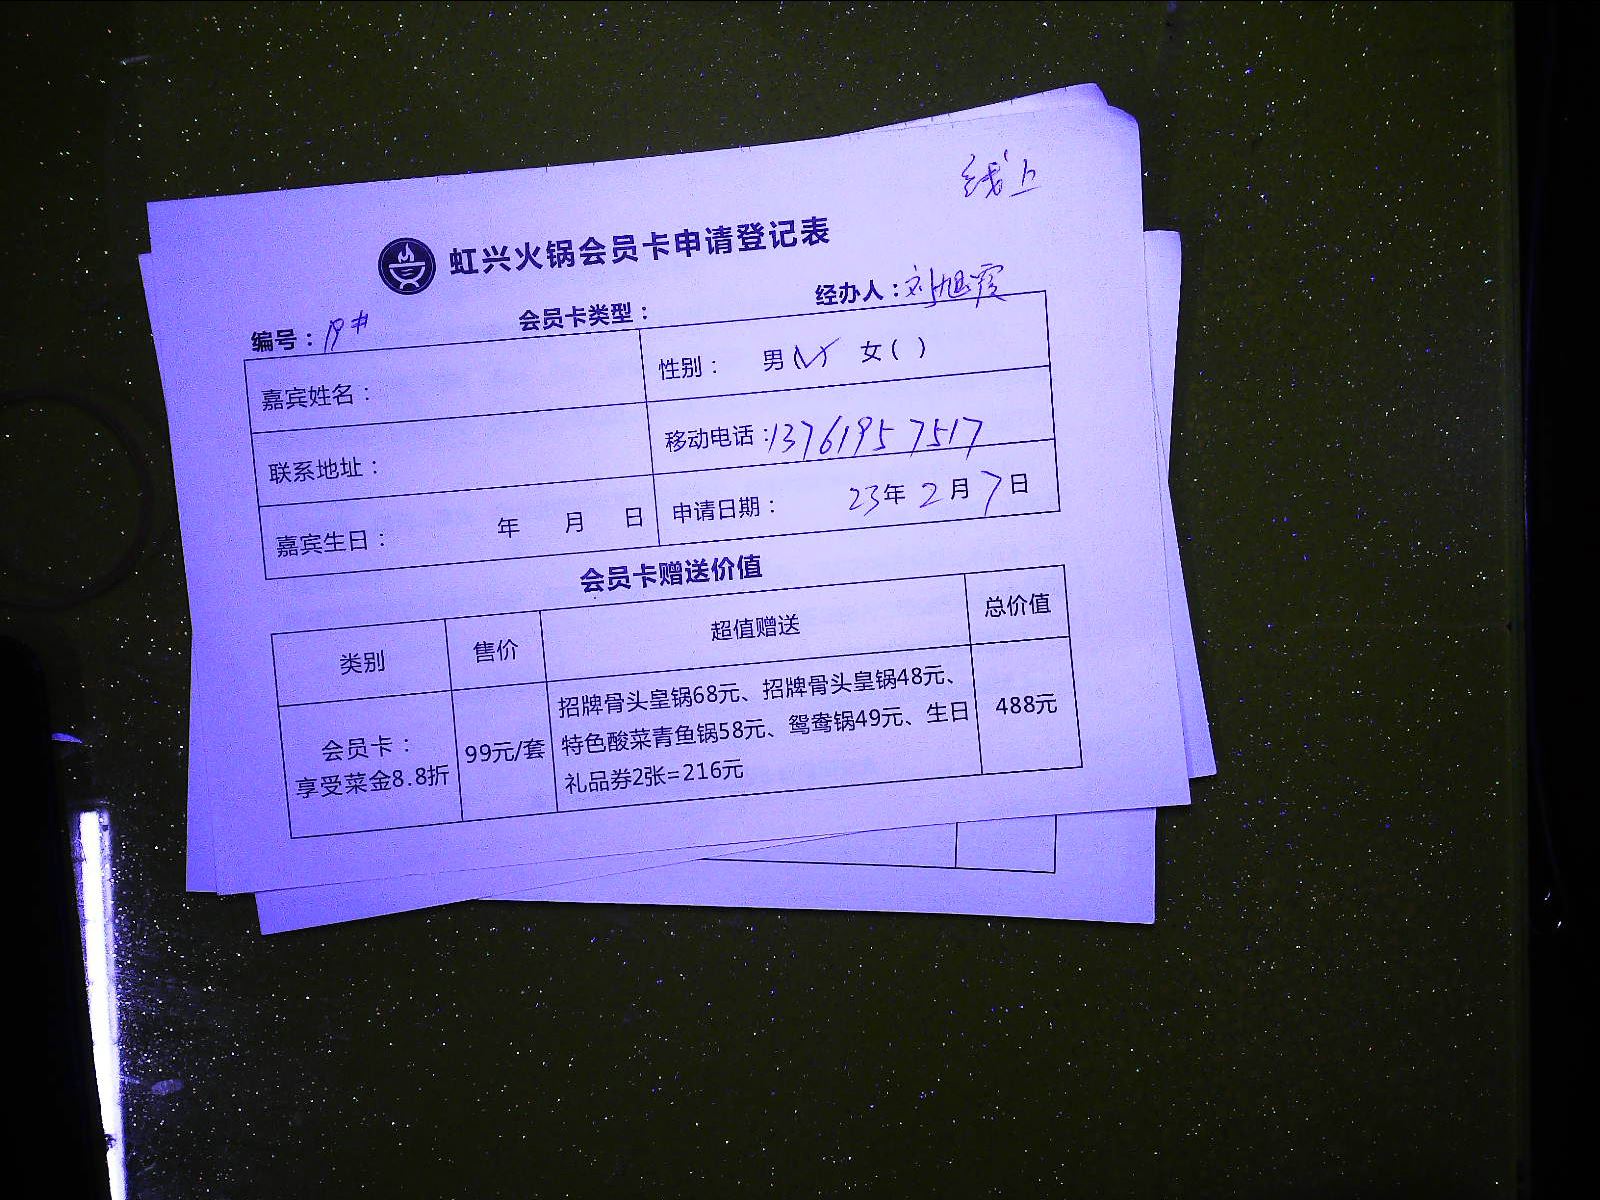 线上
虹兴火锅会员卡申请登记表
编号：19# 会员卡类型： 经办人：刘旭霞
嘉宾姓名： 性别： 男(✓) 女( )
联系地址： 移动电话：13761957517
嘉宾生日： 年 月 日 申请日期： 23年 2月 7日
会员卡赠送价值
类别 售价 超值赠送 总价值
会员卡：
享受菜金8.8折
99元/套
招牌骨头皇锅68元、招牌骨头皇锅48元、
特色酸菜青鱼锅58元、鸳鸯锅49元、生日
礼品券2张=216元
488元